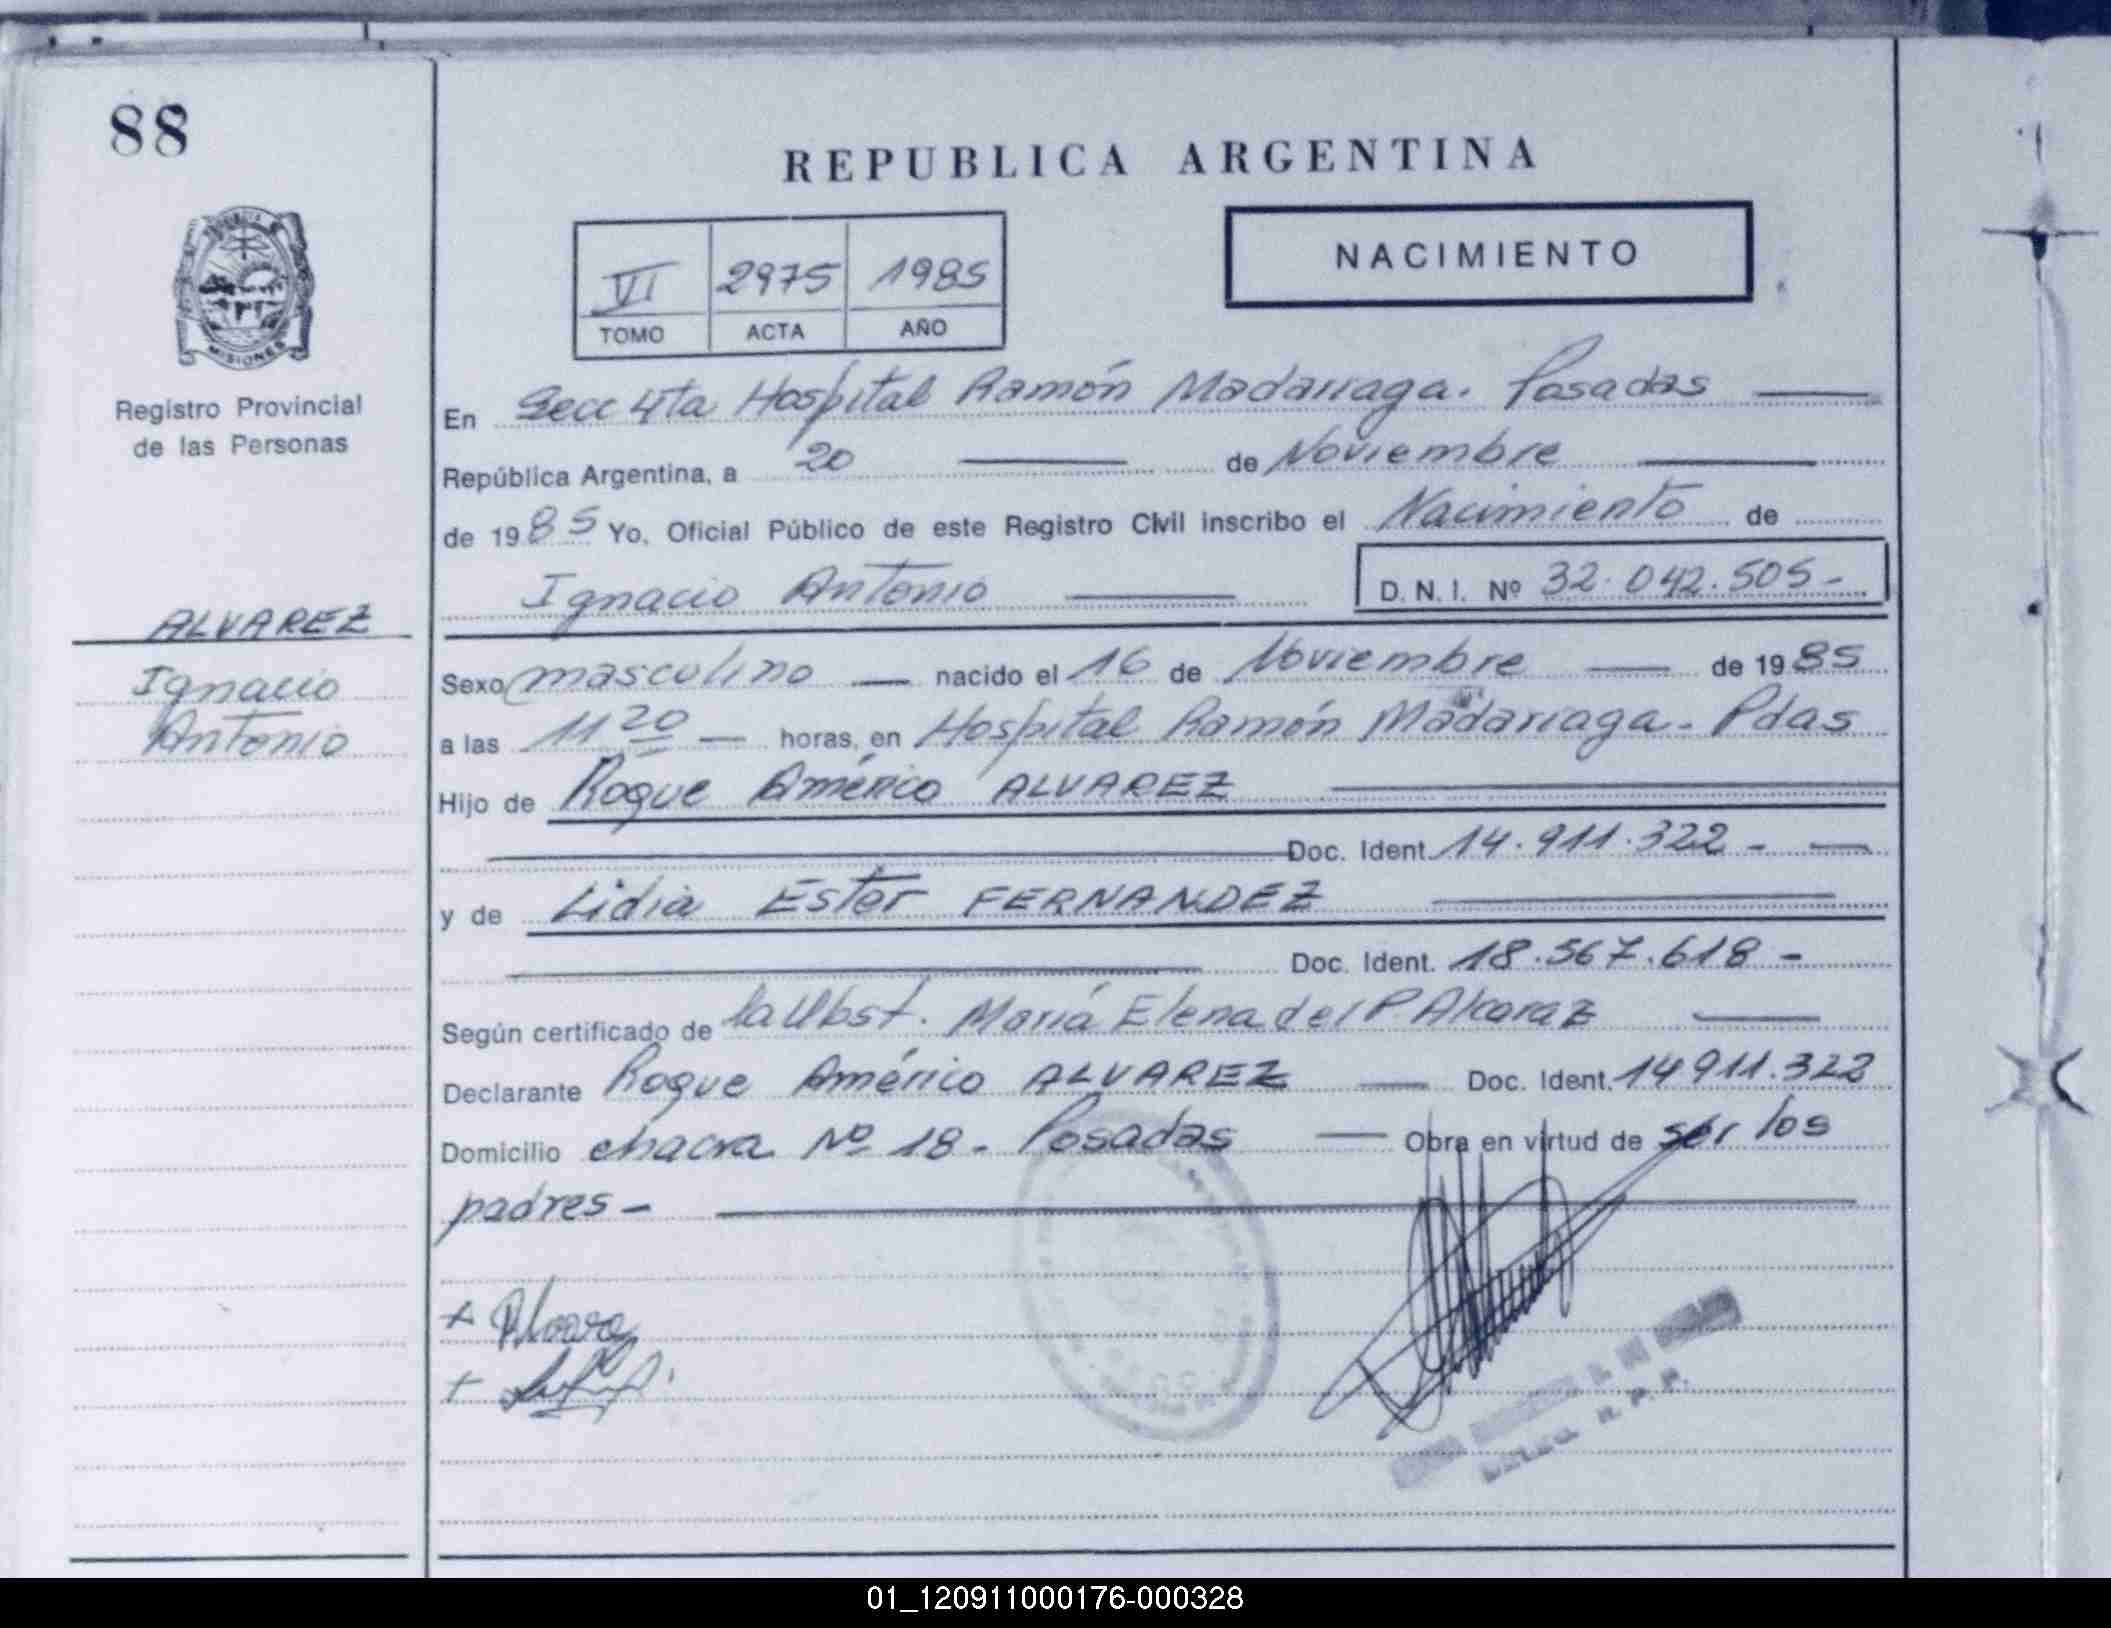 88
REPUBLICA ARGENTINA
NACIMIENTO
VI 2975 1985
TOMO ACTA AÑO
MISIONES
Registro Provincial
de las Personas
ALVAREZ
Ignacio
Antonio
En Secc 4ta Hospital Ramón Madariaga. Posadas
República Argentina, a 20 de Noviembre
de 1985 Yo, Oficial Público de este Registro Civil inscribo el Nacimiento de
Ignacio Antonio D. N. I. Nº 32.042.505-
Sexo masculino nacido el 16 de Noviembre de 1985
a las 11 20 horas, en Hospital Ramón Madariaga - Pdas
Hijo de Roque Américo ALVAREZ
Doc. Ident. 14.911.322 -
y de Lidia Ester FERNANDEZ
Doc. Ident. 18.567.618 -
Según certificado de la Obst. María Elena del P Alcaraz
Declarante Roque Américo ALVAREZ Doc. Ident. 14911.322
Domicilio chacra Nº 18 - Posadas Obra en virtud de ser los
padres -
R. P. P.
01_120911000176-000328